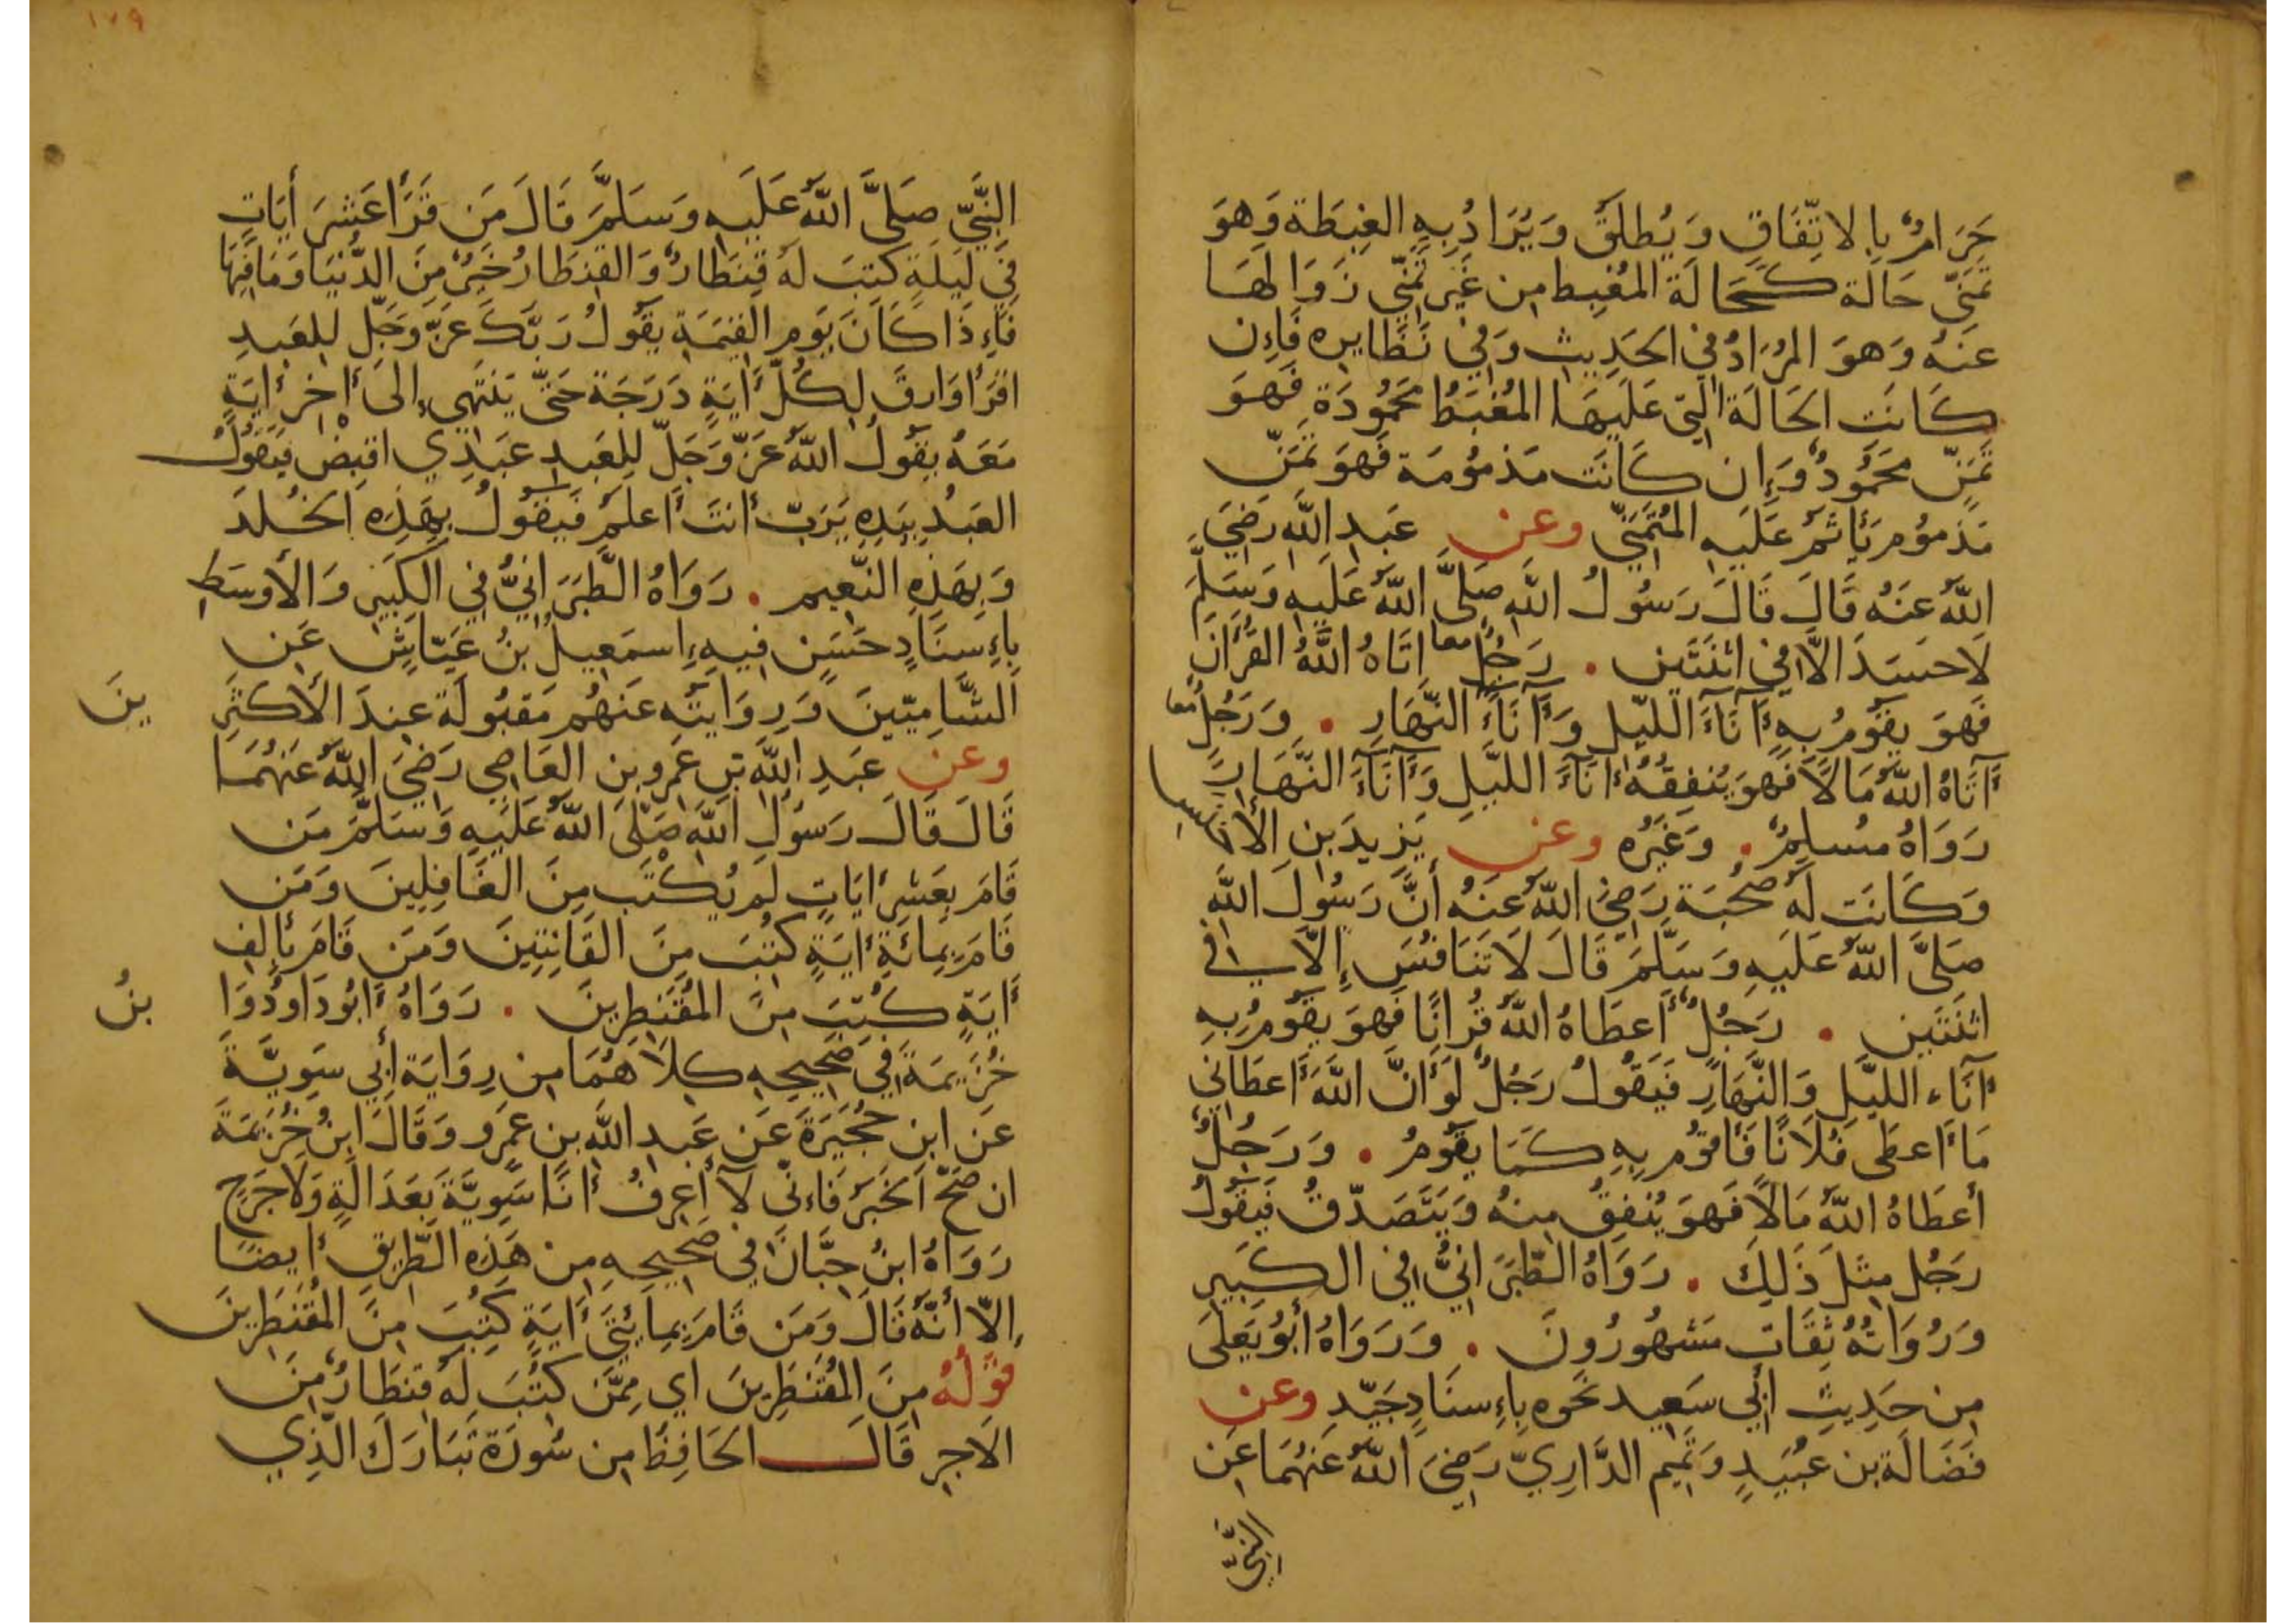 حَرَامٌ بِالاتِّفَاقِ وَيُطلَقُ وَيُرَادُ بِهِ الغِبطَة وَهوَ
تَمَنّي حَالَة كَحَالَة المُغبِط مِن غَيرِ تَمَنّي زَوَالهَا
عَنهُ وَهوَ المُرَادُ في الحَدِيثِ وَفي نَظَايِرِه فَإِن
كَانَت الحَالَة الّتي عَلَيهَا المُغبَطُ محَمُودَة فَهوَ
تَمَنّ محَمُودٌ وَإِن كَانَت مَذمُومَة فَهوَ تَمَنّ
مَذمُوم يَأثَمُ عَلَيهِ المُتَمَنّي وعن عَبدِ اللَّهِ رَضيَ
اللَّهُ عَنهُ قَالَ قَالَ رَسُولُ اللَّهِ صَلَّى اللَّهُ عَلَيهِ وَسَلَّمَ
لَا حَسَدَ الَّا في اثنَتَين . رَجُلٌ معا اتَاهُ اللَّهُ القُرآنَ
فَهوَ يقُومُ بِهِ آنَاءَ اللَّيلِ وَآنَاءَ النَّهَارِ . وَرَجُلٌ معا
آتَاهُ اللَّهُ مَالًا فَهوَ يُنفِقُهُ آنَاءَ اللَّيلِ وَآنَاءَ النَّهَارِ
رَوَاهُ مُسلِمٌ . وَغَيرُه وعن يَزِيدَ بنِ الأخنسِ
وَكَانَت لَهُ صُحبَة رَضيَ اللَّهُ عَنهُ أَنَّ رَسُولَ اللَّهِ
صَلَّى اللَّهُ عَلَيهِ وَسَلَّمَ قَالَ لَا تَنَافُسَ إِلَّا في
اثنَتَين . رَجُلٌ أَعطَاهُ اللَّهُ قُرانًا فَهوَ يقُومُ بِهِ
آنَاء اللَّيلِ وَالنَّهَارِ فَيَقُولُ رَجُلٌ لَو أَنَّ اللَّهَ أَعطَاني
مَا أَعطَى فُلَانًا فَأقُوم بِهِ كَمَا يقُومُ . وَرَجُلٌ
أَعطَاهُ اللَّهُ مَالًا فَهوَ يُنفِقُ مِنهُ وَيَتَصَدّقُ فَيَقُولُ
رَجُل مِثلَ ذَلِكَ . رَوَاهُ الطَّبَرَانيُّ في الكَبِيرِ
وَرُوَاتُهُ ثِقَات مَشهُورُونَ . وَرَوَاهُ أَبُو يَعلَى
مِن حَدِيثِ أَبي سَعِيد نَحوه بِإِسنَادٍ جَيّدٍ وعن
فَضَالَة بن عُبَيدٍ وَتَمِيم الدَّارِيّ رَضيَ اللَّهُ عَنهُمَا عَن
النَّبيّ
١٧٩
النَّبيّ صَلَّى اللَّهُ عَلَيهِ وَسَلَّمَ قَالَ مَن قَرَأَ عَشرَ أَيَاتٍ
في لَيلَةٍ كُتِبَ لَهُ قِنطَارٌ وَالقِنطَارُ خَيرٌ مِنَ الدُّنيَا وَمَا فِيهَا
فَإِذَا كَانَ يَوم القِيمَةِ يقُولُ رَبُّكَ عَزّ وَجَلّ لِلعَبدِ
اقرَأ وَارقَ لِكُلّ أَيَةٍ دَرَجَة حَتّى يَنتَهِيَ إِلى أَخِر أَيَةٍ
مَعَهُ يقُولُ اللَّهُ عَزّ وَجَلّ لِلعَبدِ عَبدِي اقبِضْ فَيَقُولُ
العَبدُ بِيَدِهِ يَرَبّ أَنتَ أَعلَمُ فَيَقُولُ بِهَذِهِ الخُلدَ
وَبِهَذِهِ النّعِيم . رَوَاهُ الطَّبَرَانيُّ في الكَبِيرِ وَالأَوسَطِ
بِإِسنَادٍ حَسَنٍ فِيهِ إِسمَعِيلُ بنُ عَيّاشٍ عَن
الشَّامِيّينَ وَرِوَايَتُهُ عَنهُم مَقبُولَة عِندَ الأَكثَرِ
ينَ
وعن عَبدِ اللَّهِ بنِ عَمرِو بن العَاصِي رَضيَ اللَّهُ عَنهُمَا
قَالَ قَالَ رَسُولُ اللَّهِ صَلَّى اللَّهُ عَلَيهِ وَسَلَّمَ مَن
قَامَ بِعَشرِ أَيَاتٍ لَم يُكْتَب مِنَ الغَافِلِينَ وَمَن
قَامَ بِمِائَةِ أَيَةٍ كُتِبَ مِنَ القَانِتِينَ وَمَن قَامَ بِأَلفِ
أَيَةٍ كُتِبَ مِنَ المُقَنطِرِينَ . رَوَاهُ أَبُو دَاوُدَ وَا
بنُ
خُزَيمَة في صَحِيحِهِ كِلَاهُمَا مِن رِوَايَة أَبي سَوِيَّةَ
عَن ابنِ حُجَيرَةَ عَن عَبدِ اللَّهِ بن عَمرٍو وَقَالَ ابنُ خُزَيمَةَ
ان صَحّ الخَبَرُ فَإِنّي لَا أَعرِفُ أَنَا سَوِيَّةَ بِعَدَالَةٍ وَلَا جَرحٍ
رَوَاهُ ابنُ حِبَّانَ في صَحِيحِهِ مِن هَذِهِ الطَّرِيق أَيضًا
إِلّا أَنَّهُ قَالَ وَمَن قَامَ بِمِايئتَي أَيَةٍ كُتِبَ مِنَ المُقَنطِرِينَ
قَولُهُ مِنَ المُقَنطِرِينَ اي مِمَّن كُتِبَ لَهُ قِنطَارٌ مِنَ
الأَجرِ قَالَ الحَافِظُ مِن سُورَة تَبَارَكَ الَّذِي